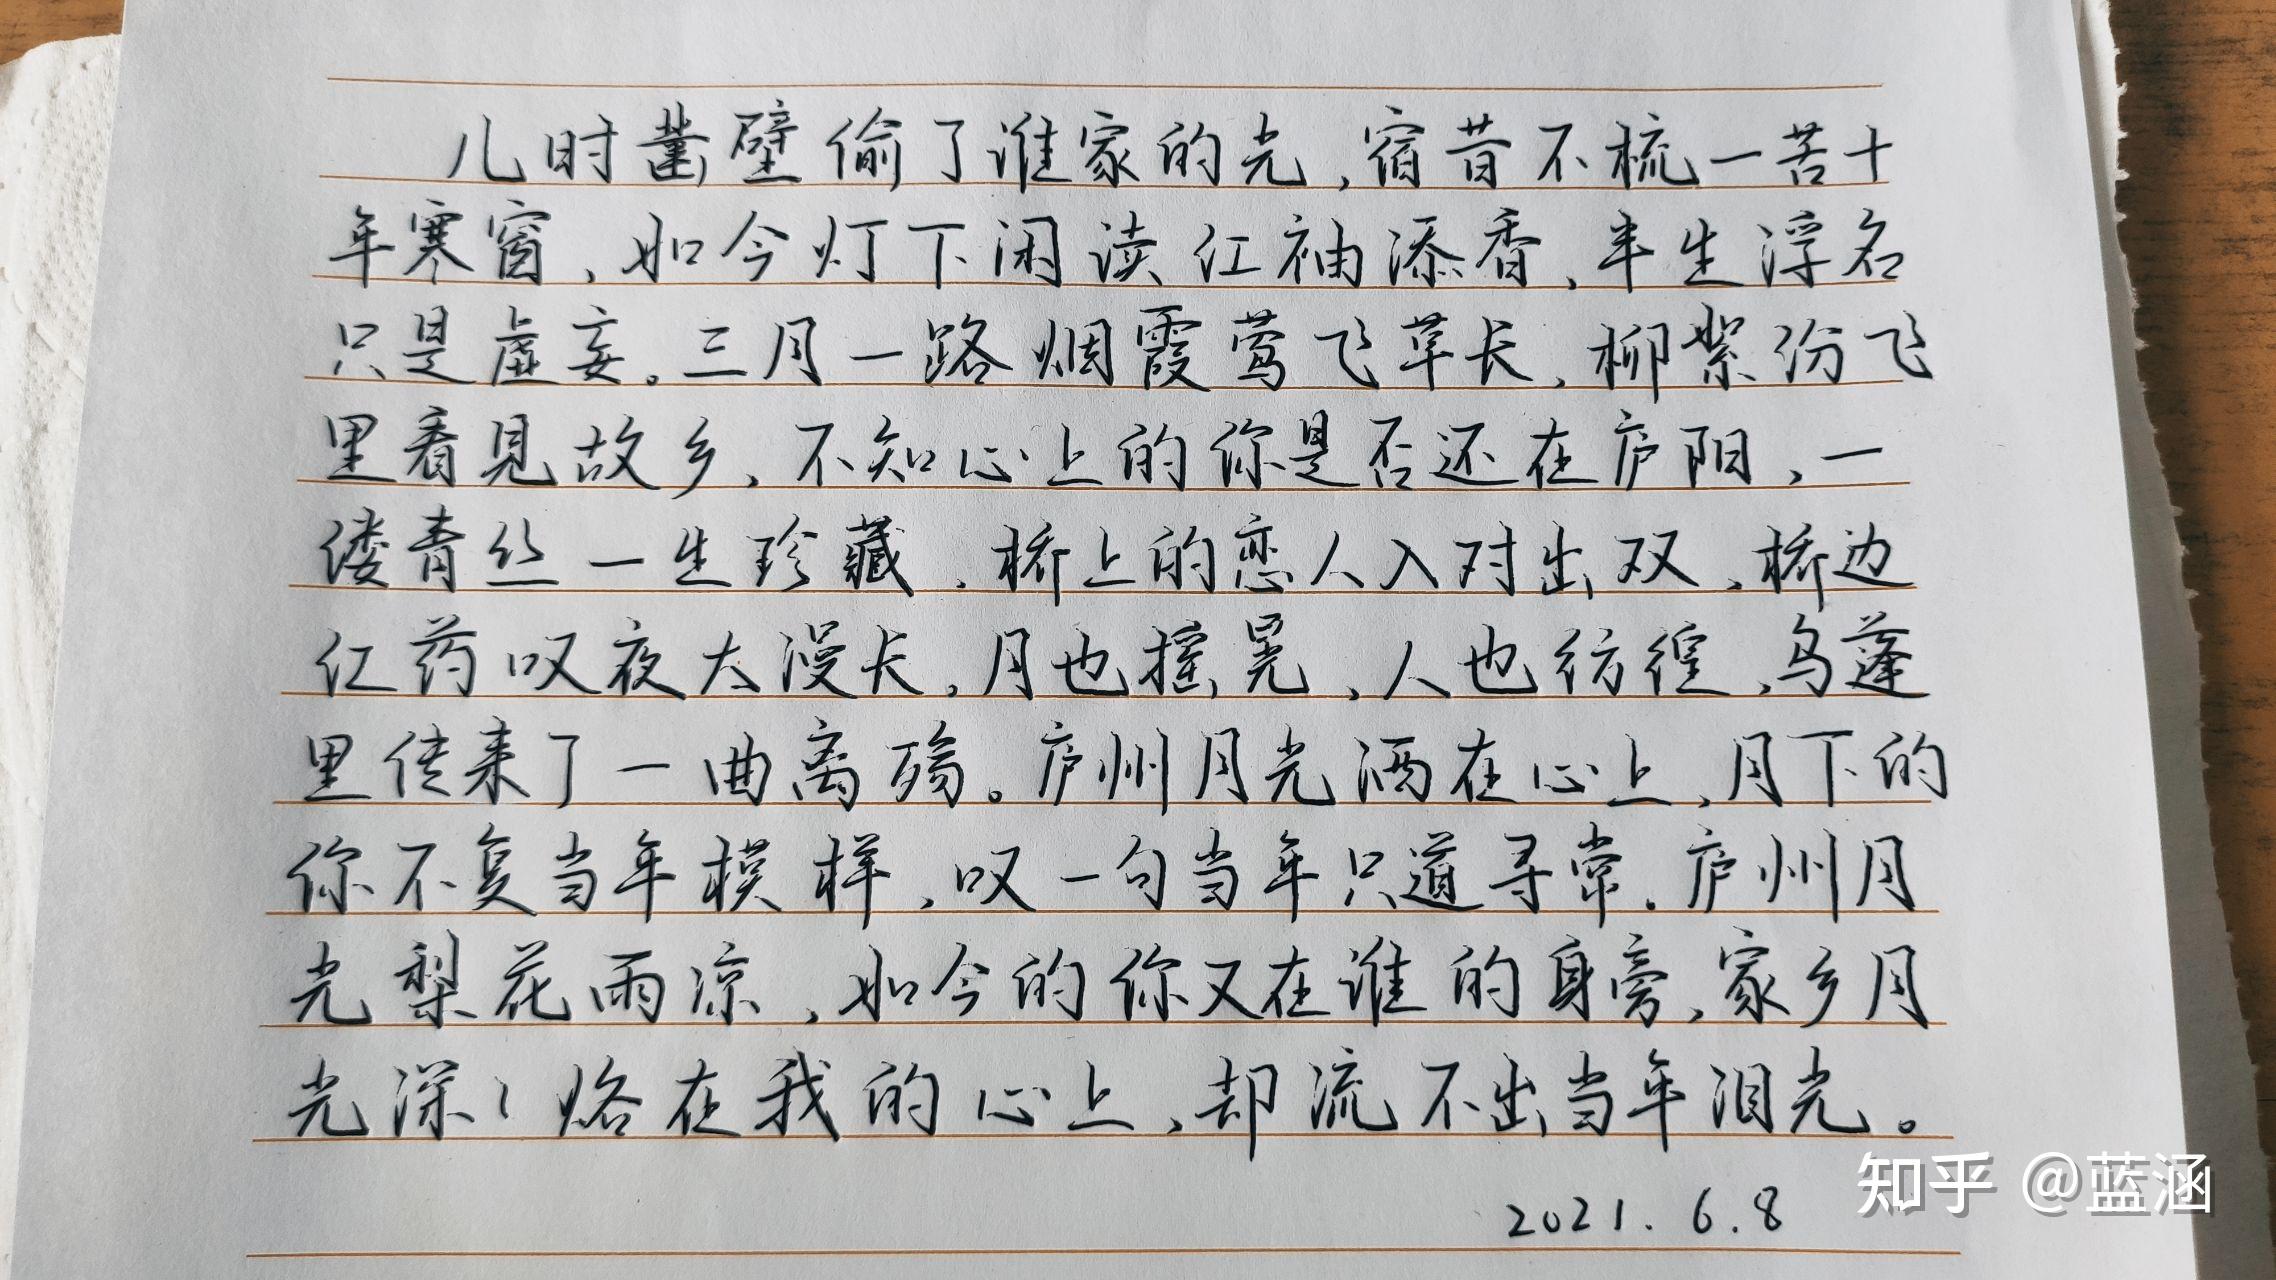 儿时凿壁偷了谁家的光,宿昔不梳一苦十
年寒窗,如今灯下闲读红袖添香,半生浮名
只是虚妄。三月一路烟霞莺飞草长,柳絮纷飞
里看见故乡,不知心上的你是否还在庐阳,一
缕青丝一生珍藏,桥上的恋人入对出双,桥边
红药叹夜太漫长,月也摇晃,人也彷徨,乌蓬
里传来了一曲离殇。庐州月光洒在心上,月下的
你不复当年模样,叹一句当年只道寻常。庐州月
光梨花雨凉,如今的你又在谁的身旁,家乡月
光深深烙在我的心上,却流不出当年泪光。
2021.6.8
知乎 @蓝涵